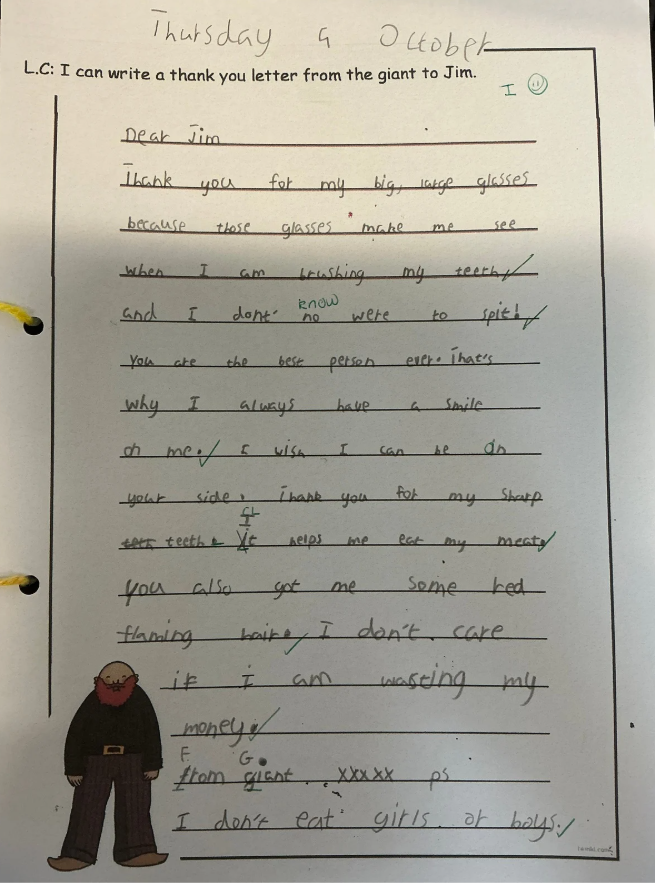 Thursday 4 October
L.C: I can write a thank you letter from the giant to Jim.
I
Dear Jim
Thank you for my big, large glasses
because those glasses make me see
when I am brushing my teeth
know
and I dont' no were to spit!
you are the best person ever. That's
why I always have a smile
on me. I wish I can be on
your side. Thank you for my sharp
teeth. It helps me eat my meat
you also got me some red
flaming hair. I don't care
if I am wasting my
money.
F G
from giant. xxxxx ps
I don't eat girls or boys.